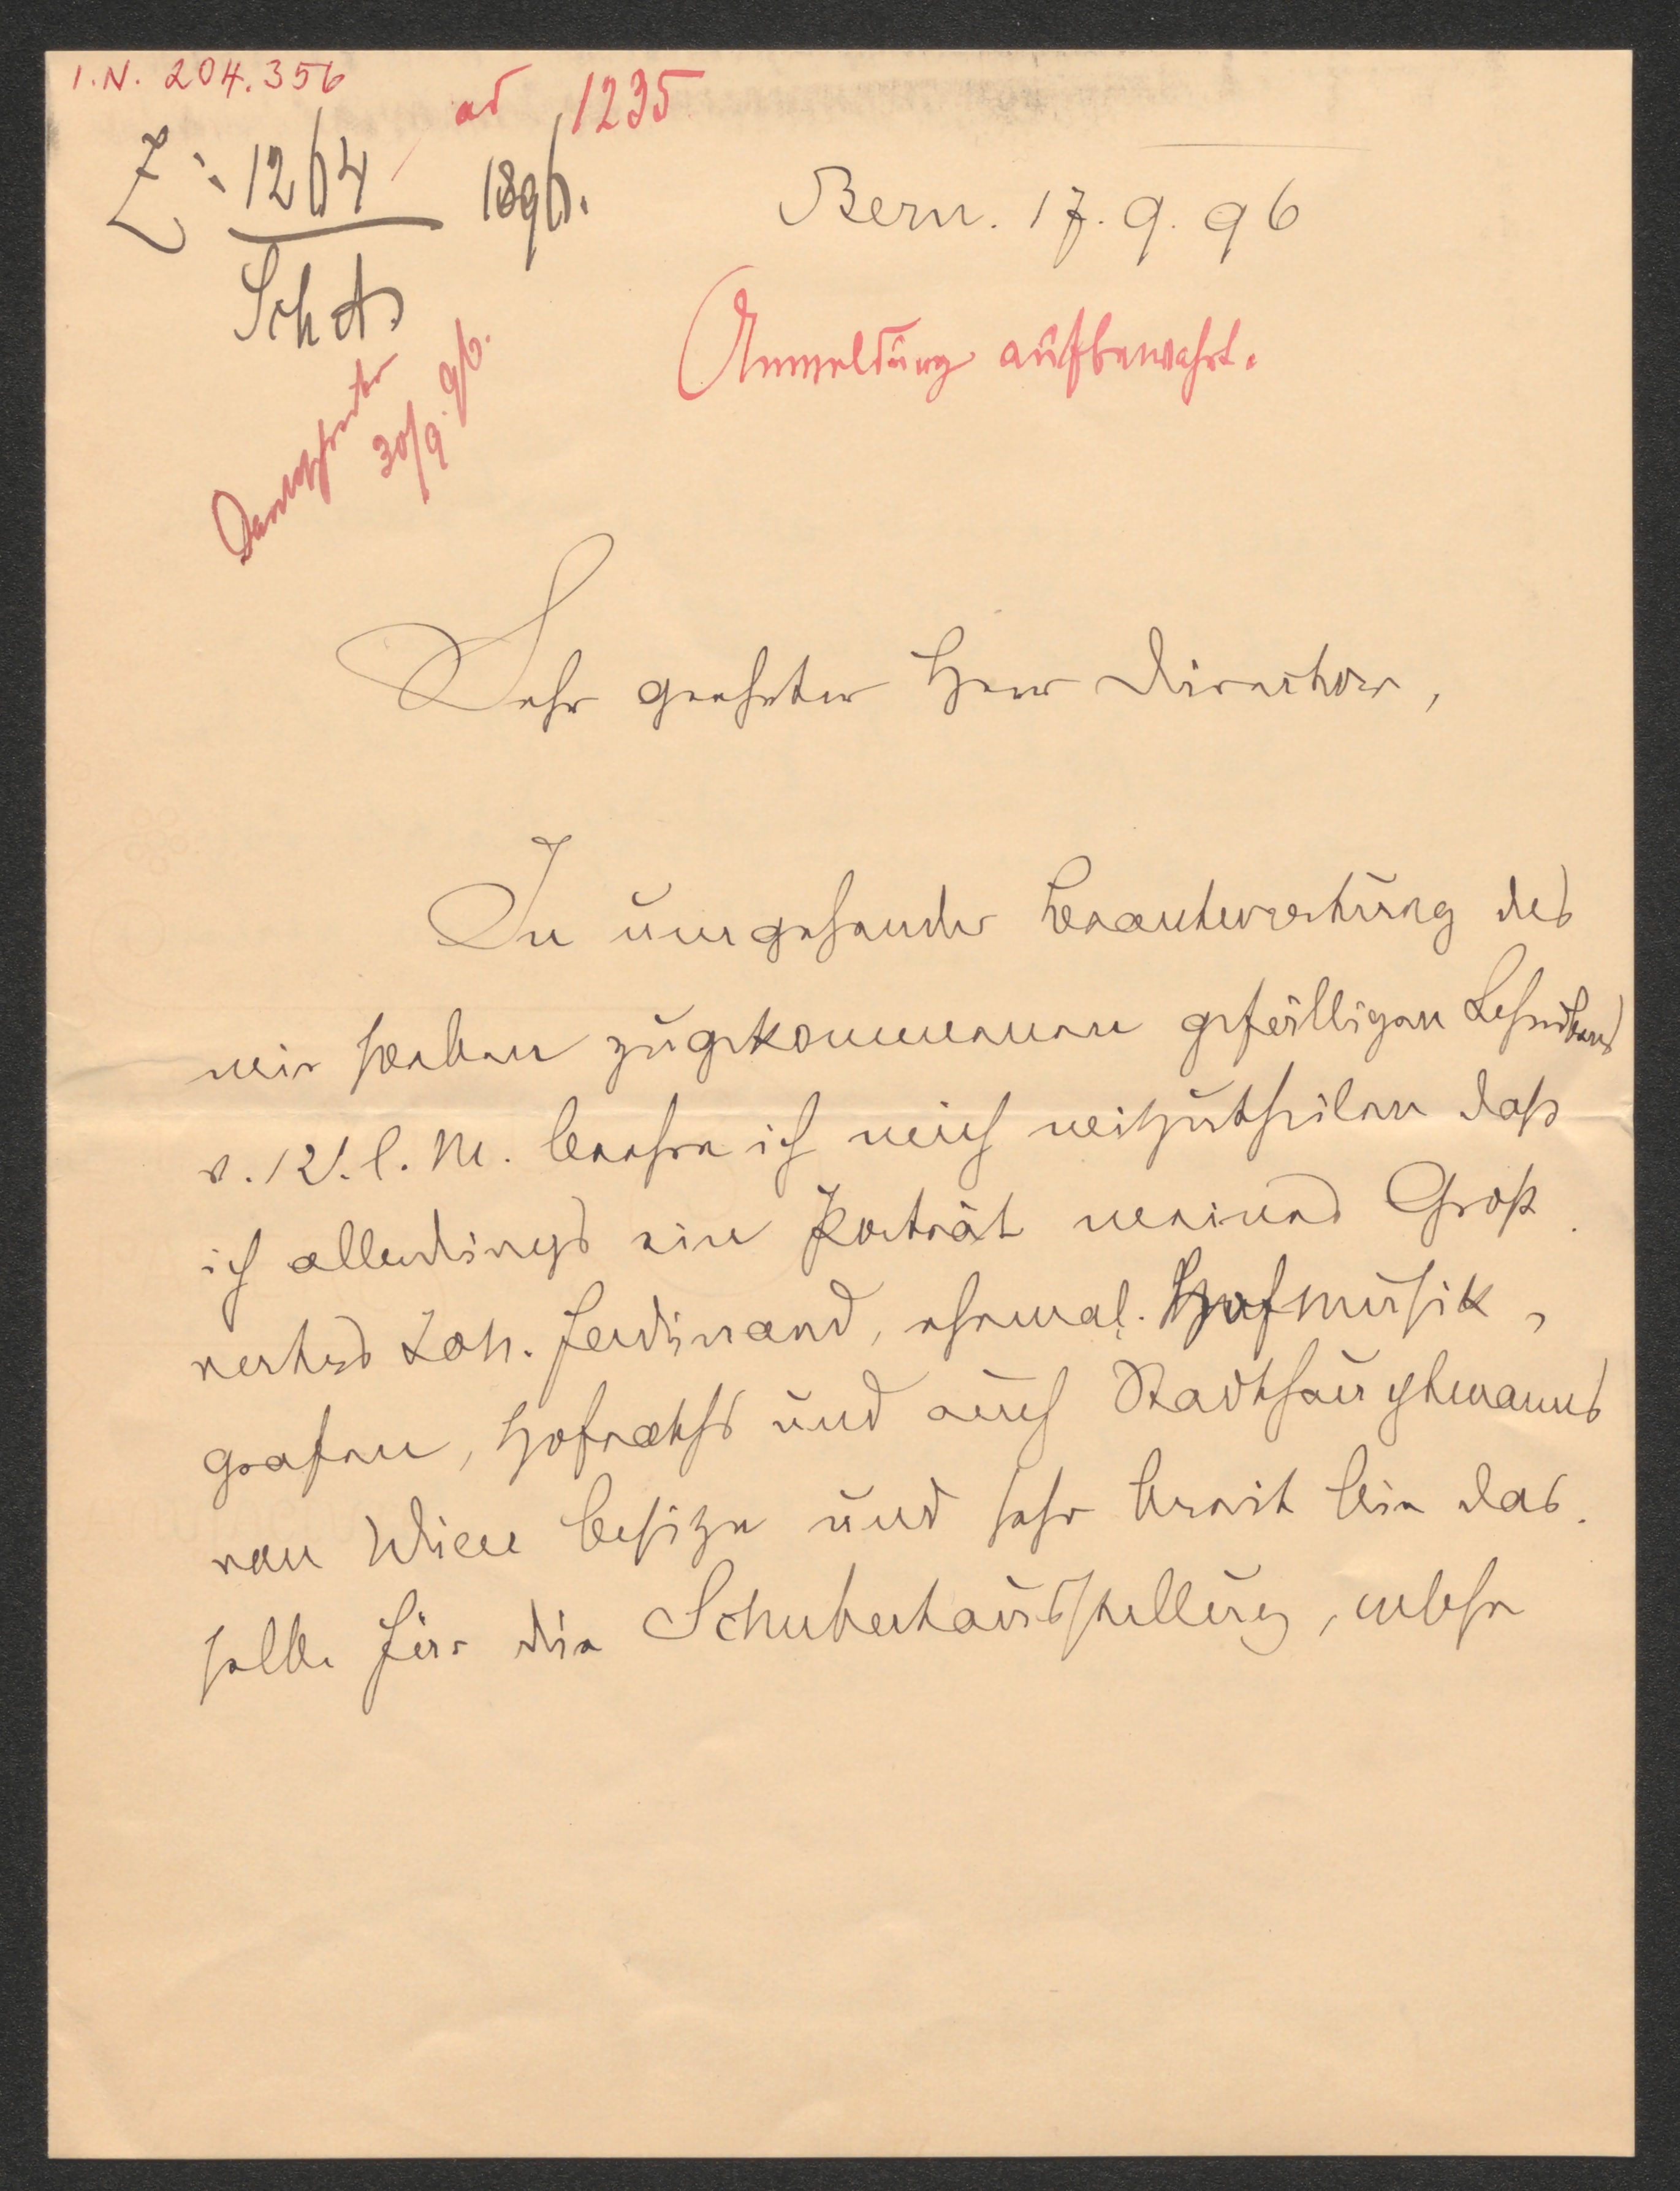 I.N. 204.356
ad 1235
Z: 1264 1896.
Sch A
Bern. 17. 9. 96
Anmeldung aufbewahrt.
30/9. 96.
Sehr geehrter Herr Director,
In umgehender Beantwortung des
mir soeben zugekommenen gefälligen Schreibens
v. 12. l. M. beehre ich mich mitzutheilen daß
ich allerdings ein Porträt meines Groß
vaters Joh. Ferdinand, ehemal. Hofmusik
grafen, Hofraths und auch Stadthauptmanns
von Wien besitze und sehr bereit bin das
selbe für die Schubertausstellung, welche